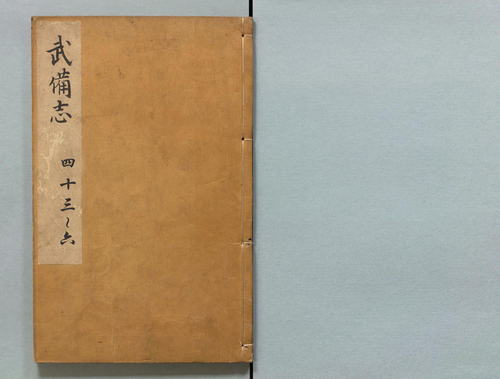 武備志
四十三〻六